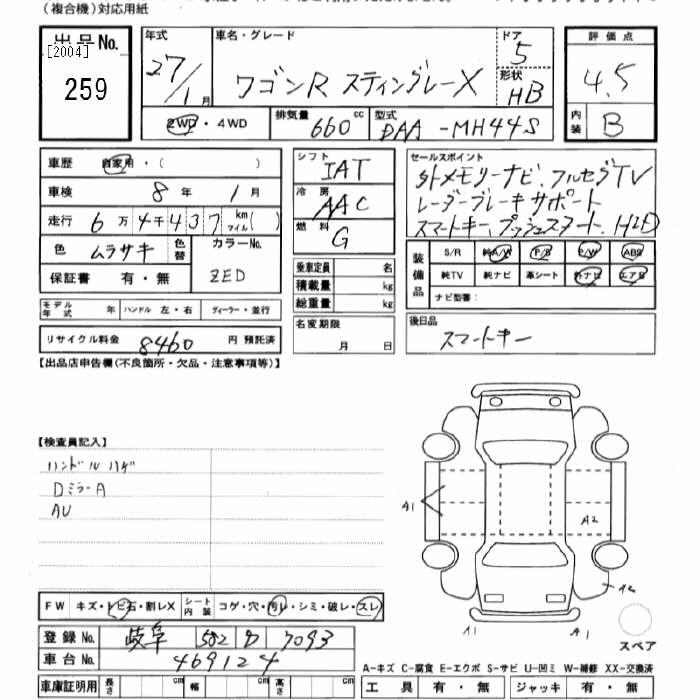 (複合機)対応用紙
出品No.
[2004]
259
年式
27/1月
車名・グレード
ワゴンR スティングレーX
ドア
5
形状
HB
評価点
4.5
内装
B
2WD・4WD
排気量
660cc
型式
DAA-MH44S
車歴 自家用・( )
車検 8年 1月
走行 6万4千437km マイル( )
色 ムラサキ 色替
カラーNo.
ZED
保証書 有・無
モデル年式 年 ハンドル 左・右 ディーラー・並行
リサイクル料金 8460円 預託済
シフト
IAT
冷房
AAC
燃料
G
乗車定員 名
積載量 kg
総重量 kg
名変期限
月 日
セールスポイント
外メモリーナビ.フルセグTV
レーダーブレーキサポート
スマートキー.プッシュスタート.HID
装備品
S/R 純A/W P/S P/W ABS
純TV 純ナビ 革シート 外ナビ エアB
ナビ型番:
後日品
スマートキー
【出品店申告欄(不良箇所・欠品・注意事項等)】
【検査員記入】
ハンドルハゲ
DミラーA
AU
A1
A2
A2
A1
A1
スペア
FW キズ・トビ石・割レX シート内装 コゲ・穴・汚レ・シミ・破レ・スレ
登録No. 岐阜 582 7093
車台No. 469124
車庫証明用 長さ cm 幅 cm 高さ cm
A-キズ C-腐食 E-エクボ S-サビ U-凹ミ W-補修 XX-交換済
工具 有・無 ジャッキ 有・無